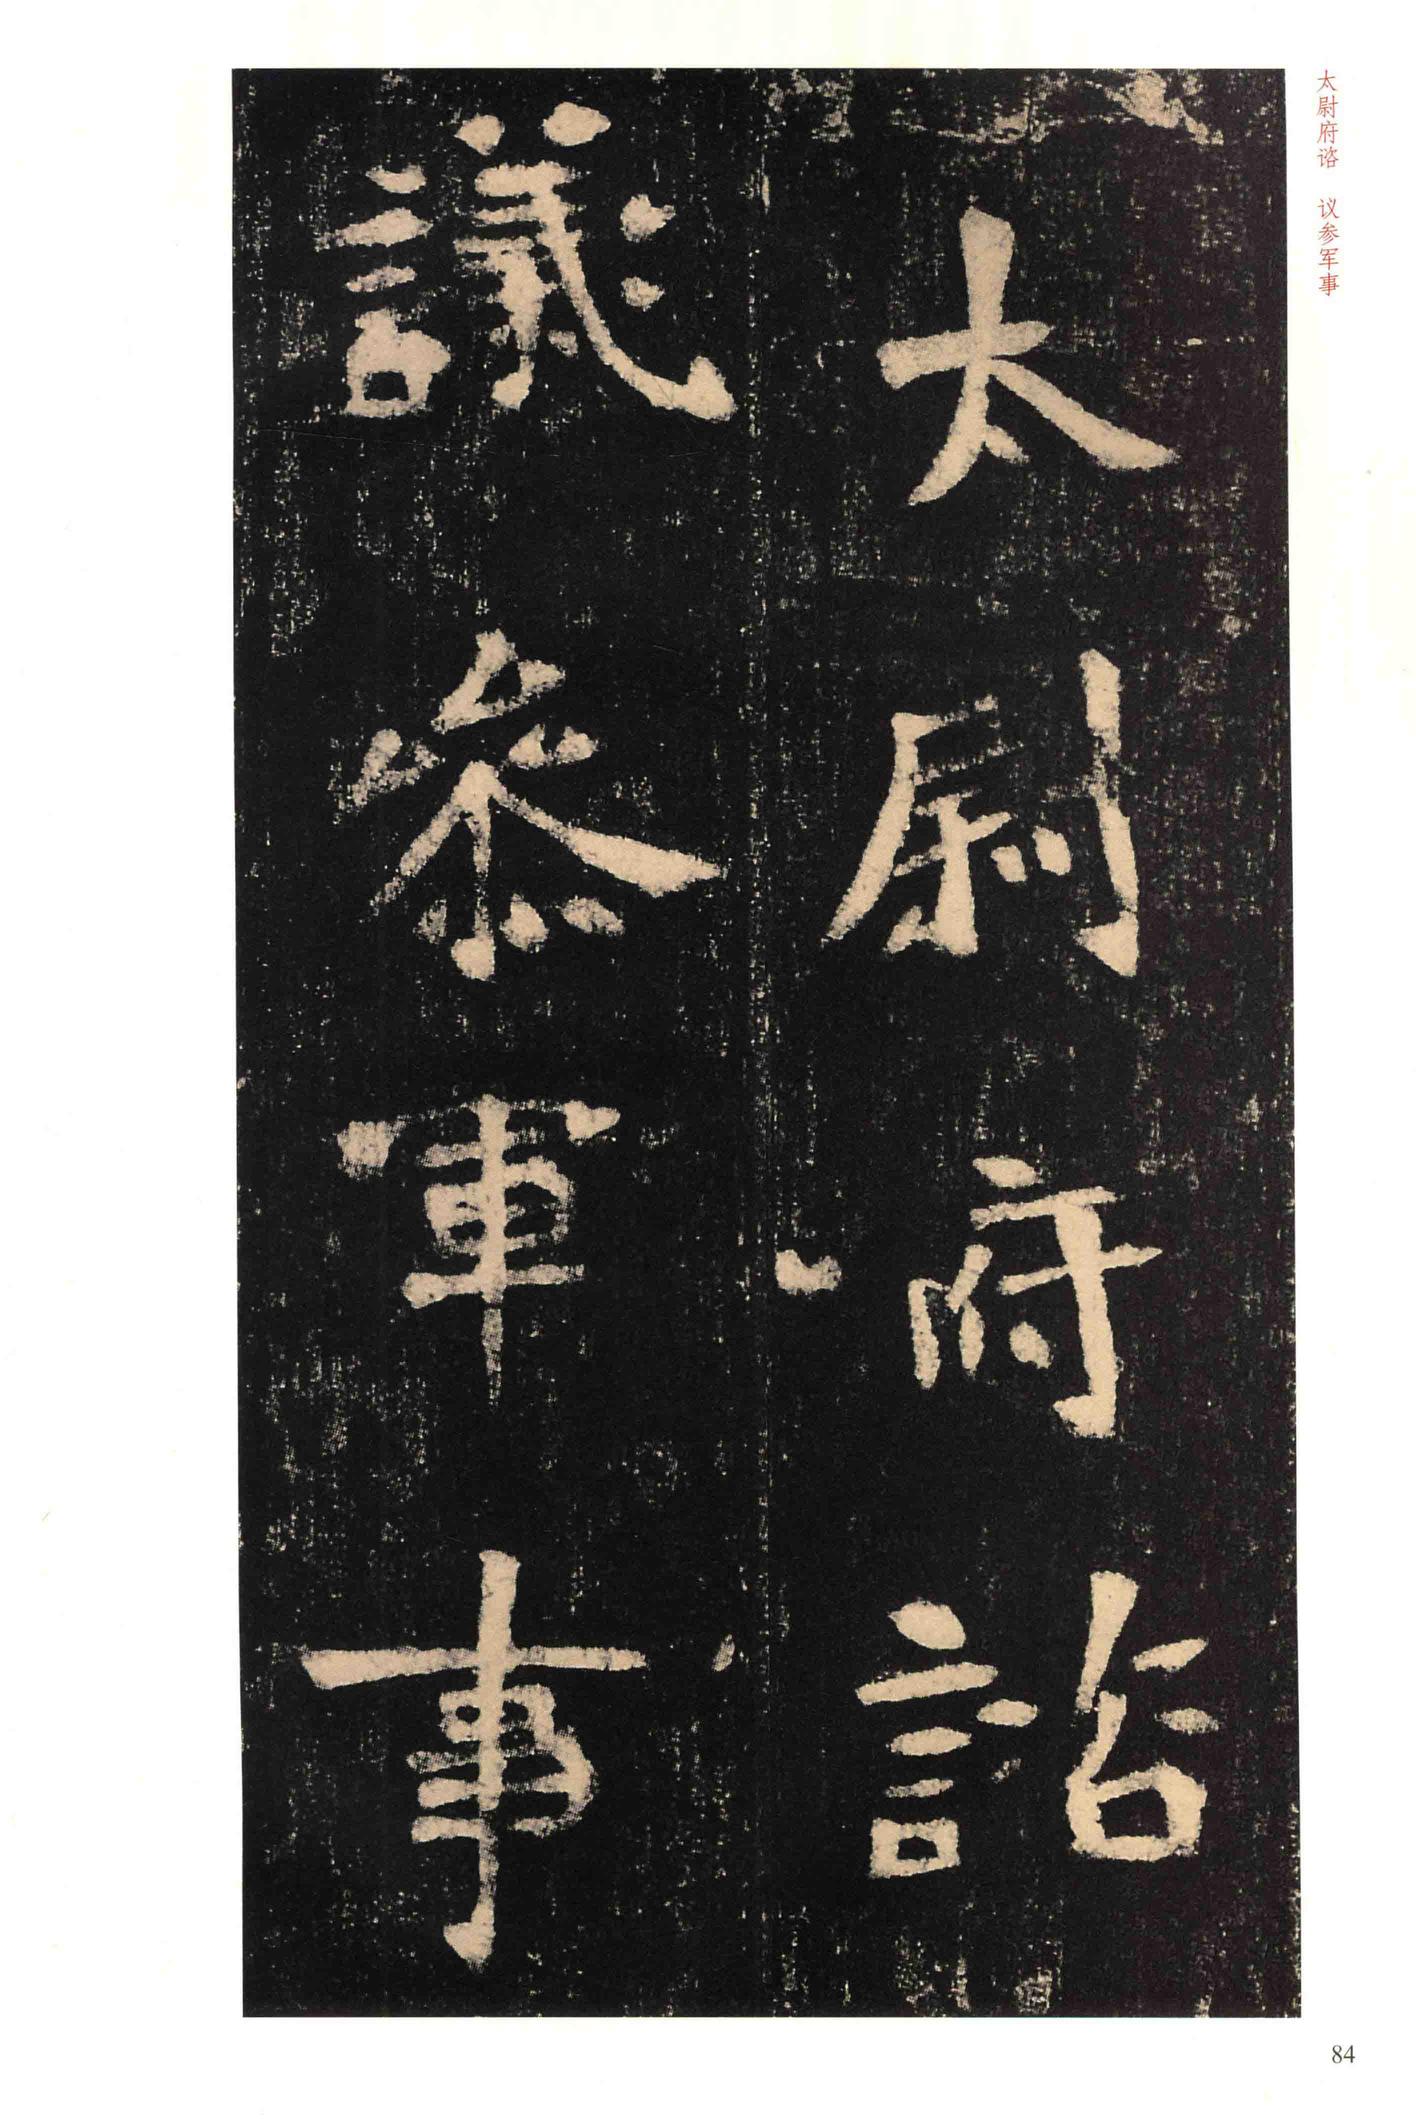 太尉府諮
議參軍事
太尉府谘 议参军事
84